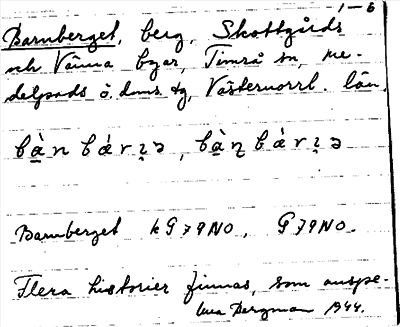 1–6
Barnberget, berg, Skottgårds
och Vänna byar, Timrå sn, Me-
delpads ö. dms. tg, Västernorrl. län.
bạ̀n bárẓə, bạ̀ṇ bárẓə
Barnberget k G79NO, G79NO.
Flera historier finnas, som anspe-
Bergman 1944.